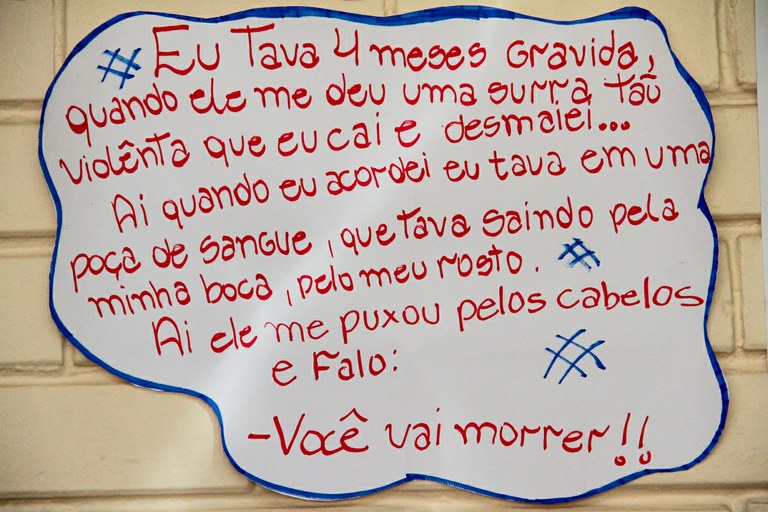 Eu Tava 4 meses Gravida,
quando ele me deu uma surra taõ
violênta que eu cai e desmaiei...
Ai quando eu acordei eu tava em uma
poça de sangue, que tava saindo pela
minha boca, pelo meu rosto.
Ai ele me puxou pelos cabelos
e Falo:
-Você vai morrer!!